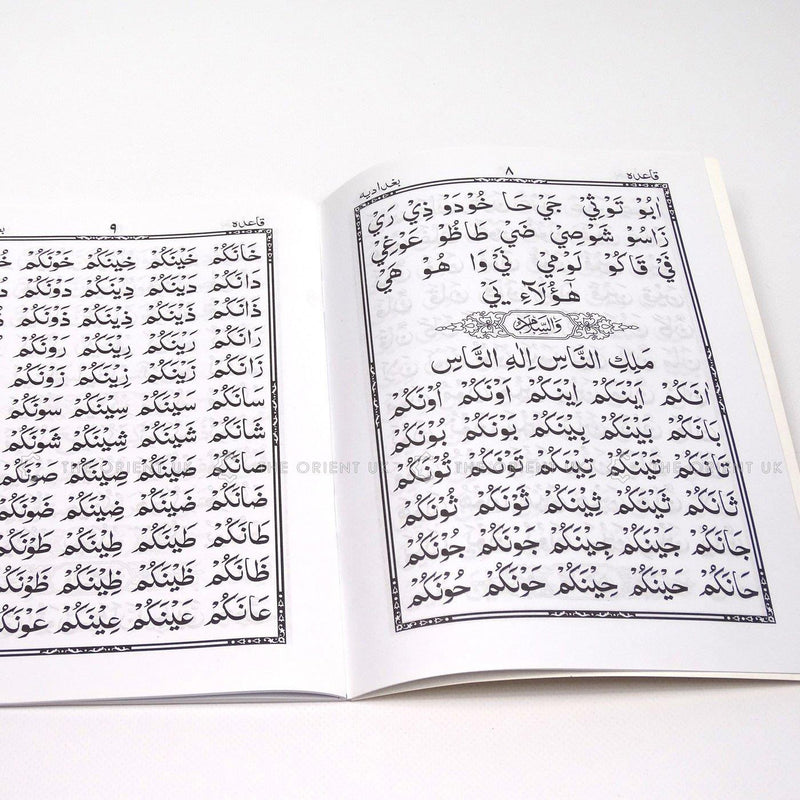 قاعده ٨ بغداديه
اَبُوْ تَوْثِيْ جَيْ حَا خُوْدَوْ ذِيْ رَيْ
زَاسُوْ شَوْصِيْ ضَيْ طَاظُوْ عَوْغِيْ
فَيْ قَاكُوْ لَوْمِيْ نَيْ وَا هُوْ هِيْ
هٰٓؤُلَآءِ يَيْ
وَالسَّلَام
مَلِكِ النَّاسِ اِلٰهِ النَّاسِ
اٰنَكُمْ اَيْنَكُمْ اِيْنَكُمْ اَوْنَكُمْ اُوْنَكُمْ
بَانَكُمْ بَيْنَكُمْ بِيْنَكُمْ بَوْنَكُمْ بُوْنَكُمْ
تَانَكُمْ تَيْنَكُمْ تِيْنَكُمْ تَوْنَكُمْ تُوْنَكُمْ
ثَانَكُمْ ثَيْنَكُمْ ثِيْنَكُمْ ثَوْنَكُمْ ثُوْنَكُمْ
جَانَكُمْ جَيْنَكُمْ جِيْنَكُمْ جَوْنَكُمْ جُوْنَكُمْ
حَانَكُمْ حَيْنَكُمْ حِيْنَكُمْ حَوْنَكُمْ حُوْنَكُمْ
قاعده ٩
خَانَكُمْ خَيْنَكُمْ خِيْنَكُمْ خَوْنَكُمْ
دَانَكُمْ دَيْنَكُمْ دِيْنَكُمْ دَوْنَكُمْ
ذَانَكُمْ ذَيْنَكُمْ ذِيْنَكُمْ ذَوْنَكُمْ
رَانَكُمْ رَيْنَكُمْ رِيْنَكُمْ رَوْنَكُمْ
زَانَكُمْ زَيْنَكُمْ زِيْنَكُمْ زَوْنَكُمْ
سَانَكُمْ سَيْنَكُمْ سِيْنَكُمْ سَوْنَكُمْ
شَانَكُمْ شَيْنَكُمْ شِيْنَكُمْ شَوْنَكُمْ
صَانَكُمْ صَيْنَكُمْ صِيْنَكُمْ صَوْنَكُمْ
ضَانَكُمْ ضَيْنَكُمْ ضِيْنَكُمْ ضَوْنَكُمْ
طَانَكُمْ طَيْنَكُمْ طِيْنَكُمْ طَوْنَكُمْ
ظَانَكُمْ ظَيْنَكُمْ ظِيْنَكُمْ ظَوْنَكُمْ
عَانَكُمْ عَيْنَكُمْ عِيْنَكُمْ عَوْنَكُمْ
THE ORIENT UK THE ORIENT UK THE ORIENT UK THE ORIENT UK